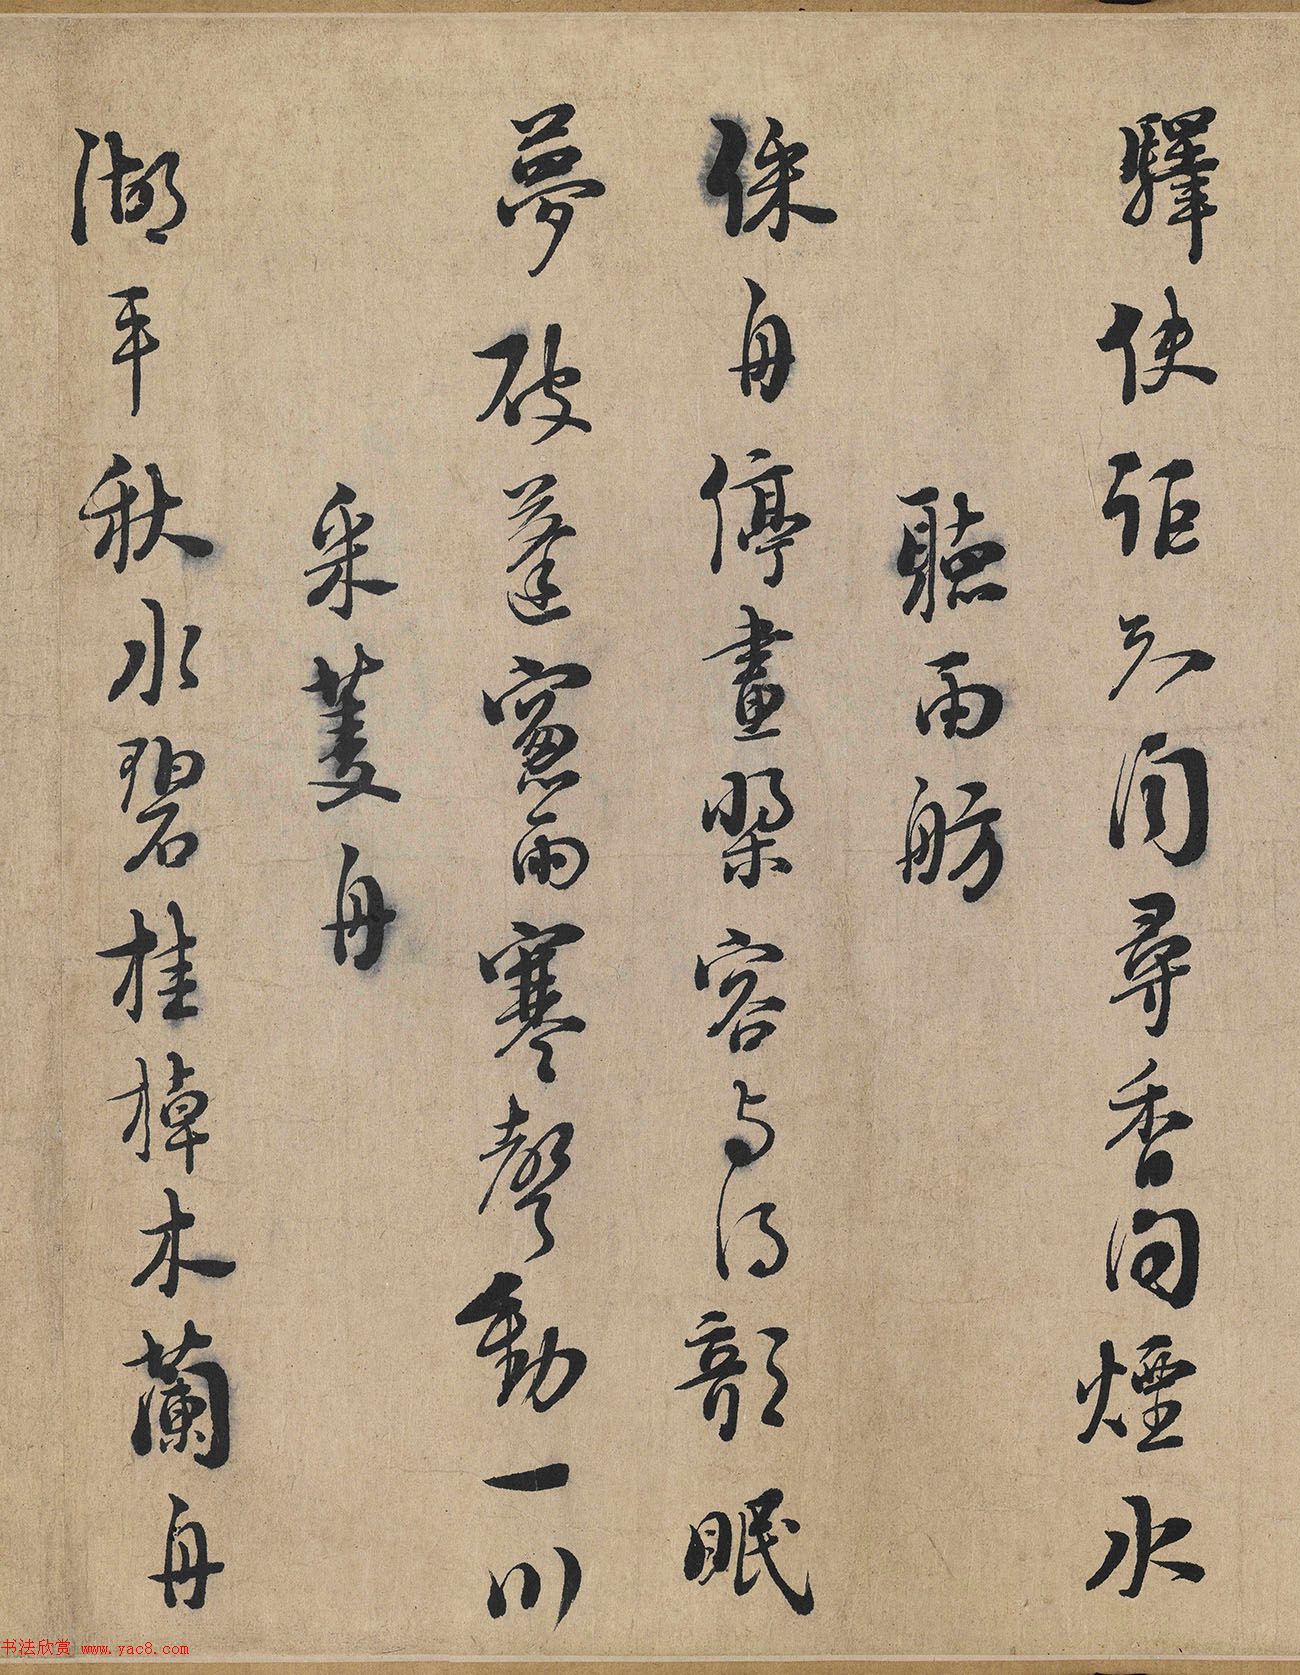 驛使詎知閒尋香問煙水
聽雨舫
係舟停畫槳容与得 眠
夢破蓬窗雨寒聲動一川
采菱舟
湖平秋水碧桂棹木蘭舟
书法欣赏 www.yac8.com